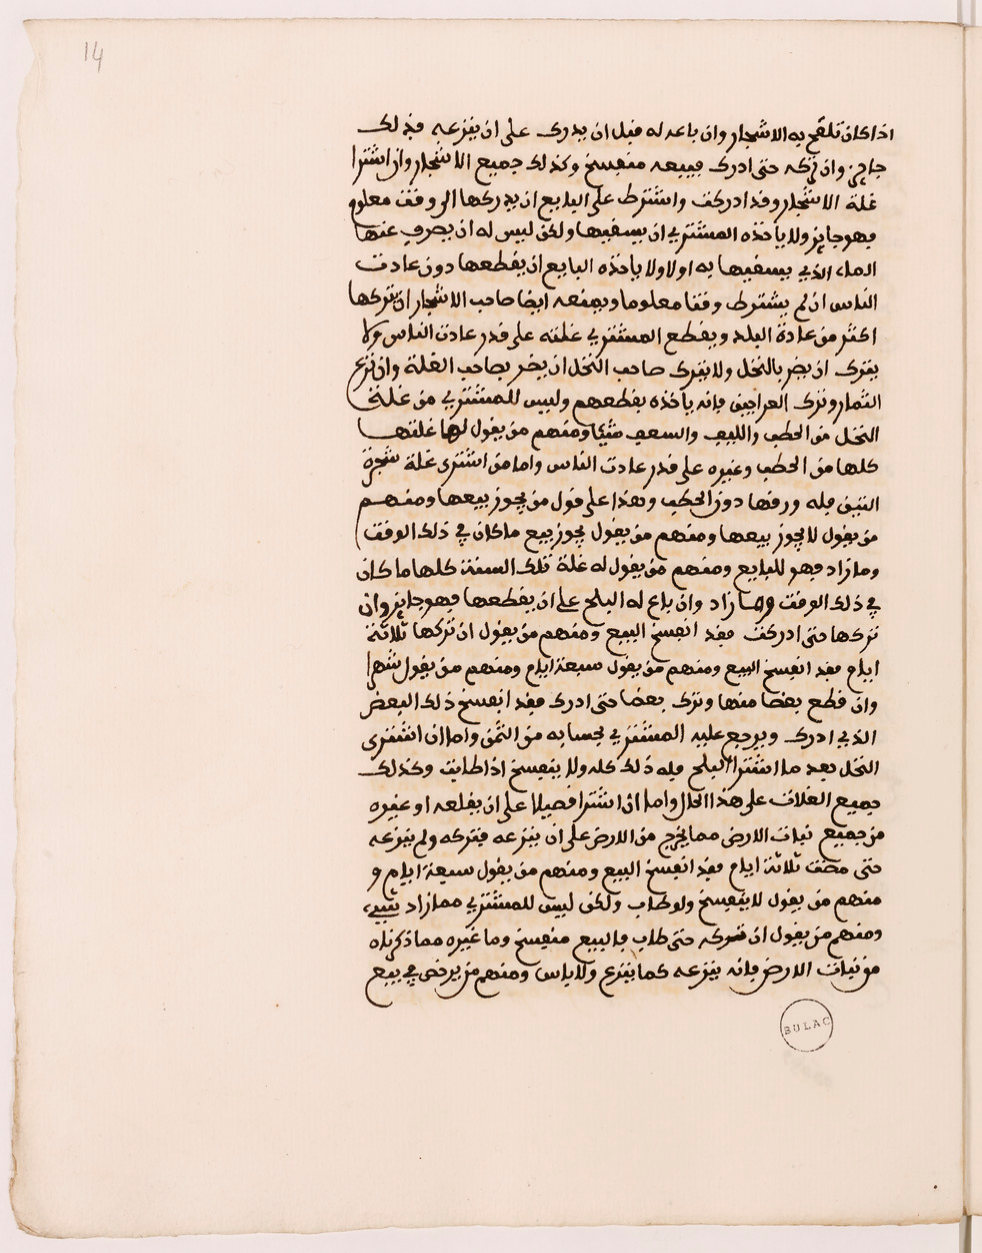 14
اذا كان تلقح به الاشجار وان باعه له قبل ان يدرك على ان ينزعه فذلك
جايز وان تركه حتى ادرك فبيعه منفسخ وكذلك جميع الاشجار وان اشترا
غلة الاشجار وقد ادركت واشترط على البايع ان يدركها الى وقت معلوم
فهو جايز ولا ياخذه المشتري ان يسقيها ولكن ليس له ان يصرف عنها
الماء الذي يسقيها به اولا ولا ياخذه البايع ان يقطعها دون عادت
الناس ان لم يشترط وقتا معلوما ويمنعه ايضا صاحب الاشجار ان يتركها
اكثر من عادة البلد ويقطع المشتري غلته على قدر عادت الناس ولا
يترك ان يضر بالنخل ولا يترك صاحب النخل ان يضر بصاحب الغلة وان نزع
الثمار وترك العراجين فانه ياخذه بقطعهم وليس للمشتري من غلة
النخل من الحطب والليف والسعف شيا ومنهم من يقول لها غلتها
كلها من الحطب وغيره على قدر عادت الناس واما من اشترى غلة شجرة
التين فله ورقها دون الحطب وهذا على قول من يجوز بيعها ومنهم
من يقول لا يجوز بيعها ومنهم من يقول يجوز بيع ما كان في ذلك الوقت
وما زاد فهو للبايع ومنهم من يقول له غلة تلك السنة كلها ما كان
في ذلك الوقت وما زاد وان باع له البلح على ان يقطعها فهو جايز وان
تركها حتى ادركت فقد انفسخ البيع ومنهم من يقول ان تركها ثلاثة
ايام فقد انفسخ البيع ومنهم من يقول سبعة ايام ومنهم من يقول شهرا
وان قطع بعضا منها وترك بعضا حتى ادرك فقد انفسخ ذلك البعض
الذي ادرك ويرجع عليه المشتري بحسابه من الثمن واما ان اشترى
النخل بعد ما اشترا البلح فله ذلك كله ولا ينفسخ اذا طابت وكذلك
جميع الغلات على هذا الحال واما ان اشترا فصيلا على ان يقلعه او غيره
من جميع نبات الارض مما يخرج من الارض على ان ينزعه فتركه ولم ينزعه
حتى مضت ثلاثة ايام فقد انفسخ البيع ومنهم من يقول سبعة ايام و
منهم من يقول لا ينفسخ ولو طاب ولكن ليس للمشتري مما زاد شيء
ومنهم من يقول ان تركه حتى طاب فالبيع منفسخ وما غيره مما ذكرناه
من نبات الارض فانه ينزعه كما ينزع ولا باس ومنهم من يرخص في بيع
BULAC